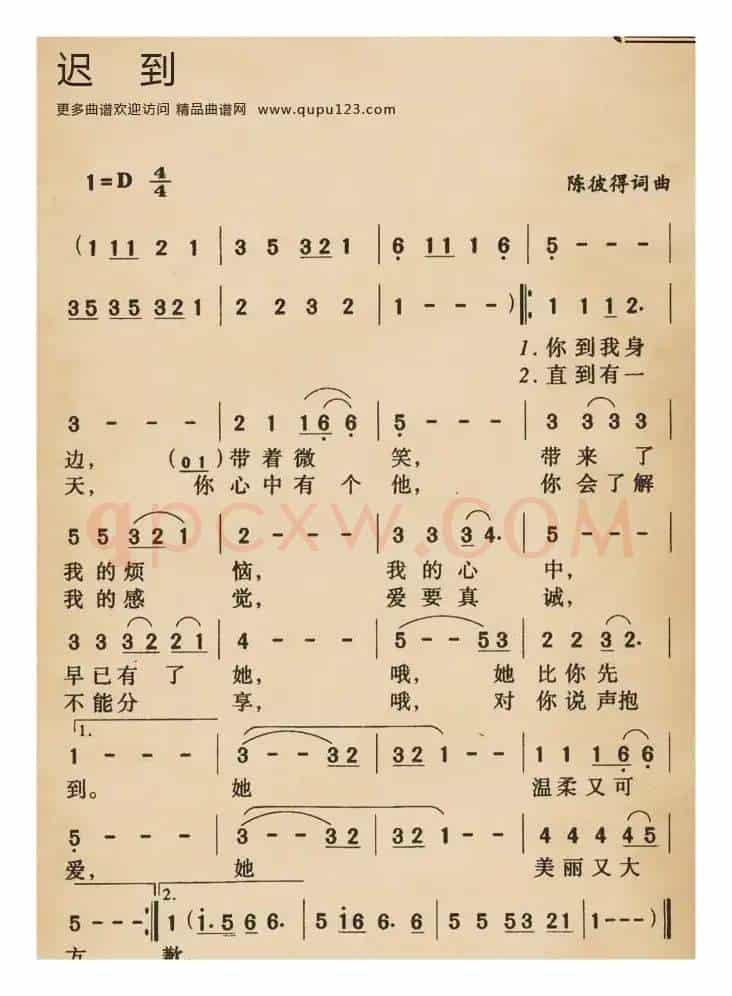 迟 到
更多曲谱欢迎访问 精品曲谱网 www.qupu123.com
1=D 4/4 陈彼得词曲
(1 1 1 2 1 | 3 5 3 2 1 | 6 1 1 1 6 | 5 - - - |
3 5 3 5 3 2 1 | 2 2 3 2 | 1 - - - ) ‖: 1 1 1 2. |
1. 你 到 我 身
2. 直 到 有 一
3 - - - | 2 1 1 6 6 | 5 - - - | 3 3 3 3 |
边, (0 1) 带 着 微 笑, 带 来 了
天, 你 心 中 有 个 他, 你 会 了 解
5 5 3 2 1 | 2 - - - | 3 3 3 4. | 5 - - - |
我 的 烦 恼, 我 的 心 中,
我 的 感 觉, 爱 要 真 诚,
3 3 3 2 2 1 | 4 - - - | 5 - - 5 3 | 2 2 3 2. |
早 已 有 了 她, 哦, 她 比 你 先
不 能 分 享, 哦, 对 你 说 声 抱
1.
1 - - - | 3 - - 3 2 | 3 2 1 - - | 1 1 1 6 6 |
到。 她 温 柔 又 可
5 - - - | 3 - - 3 2 | 3 2 1 - - | 4 4 4 4 5 |
爱, 她 美 丽 又 大
2.
5 - - - :‖ 1 ( i. 5 6 6. | 5 i 6 6. 6 | 5 5 5 3 2 1 | 1 - - - ) |
方 歉
qpcxw.COM